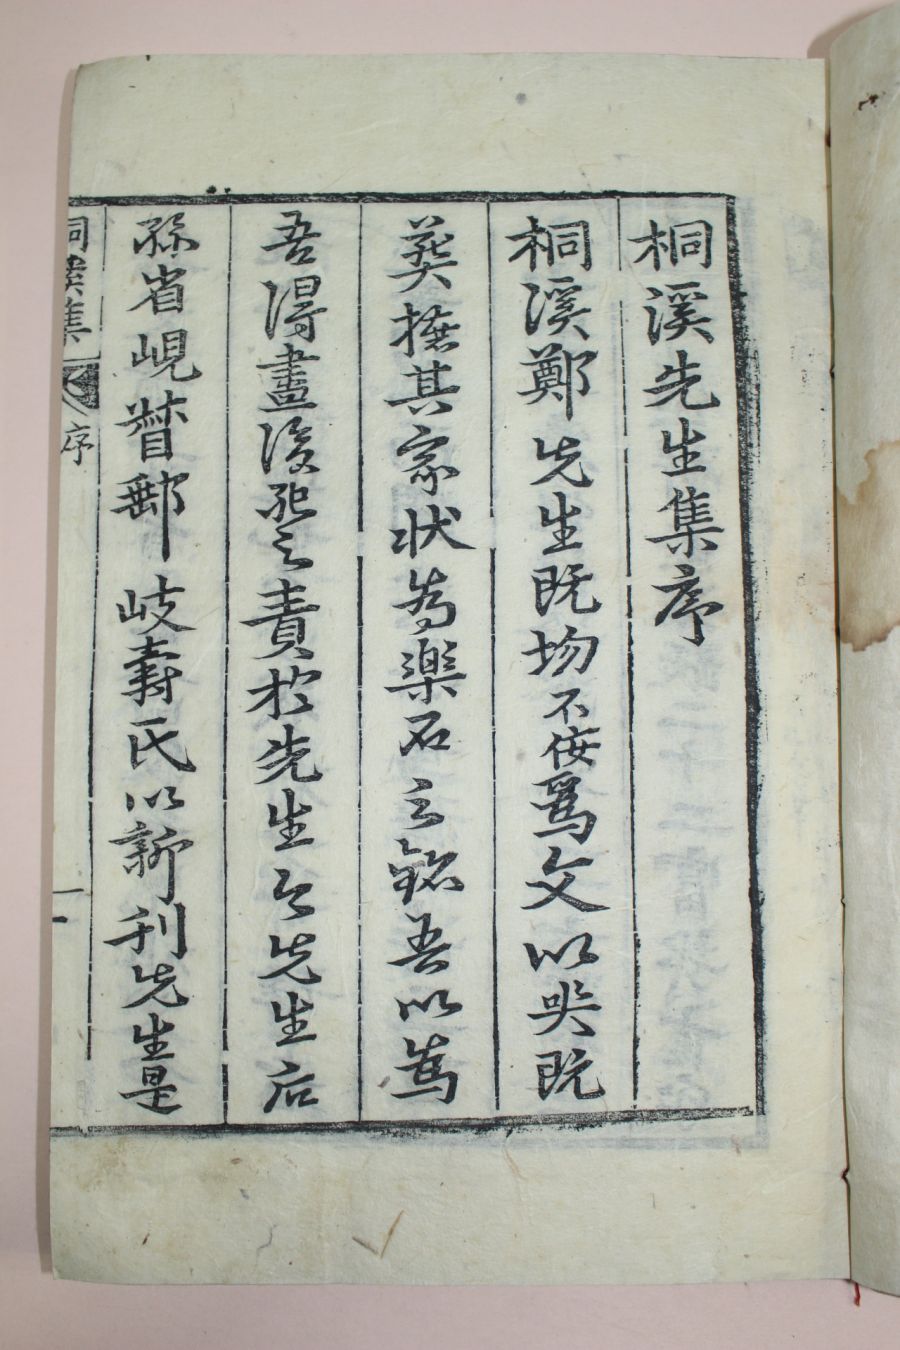 桐溪先生集序
桐溪鄭先生既圽不佞爲文以哭既
葬摭其家状為樂石之銘吾以為
吾得盡後死之責於先生今先生后
孫省峴督郵岐壽氏以新刊先生是
桐溪集 序 一